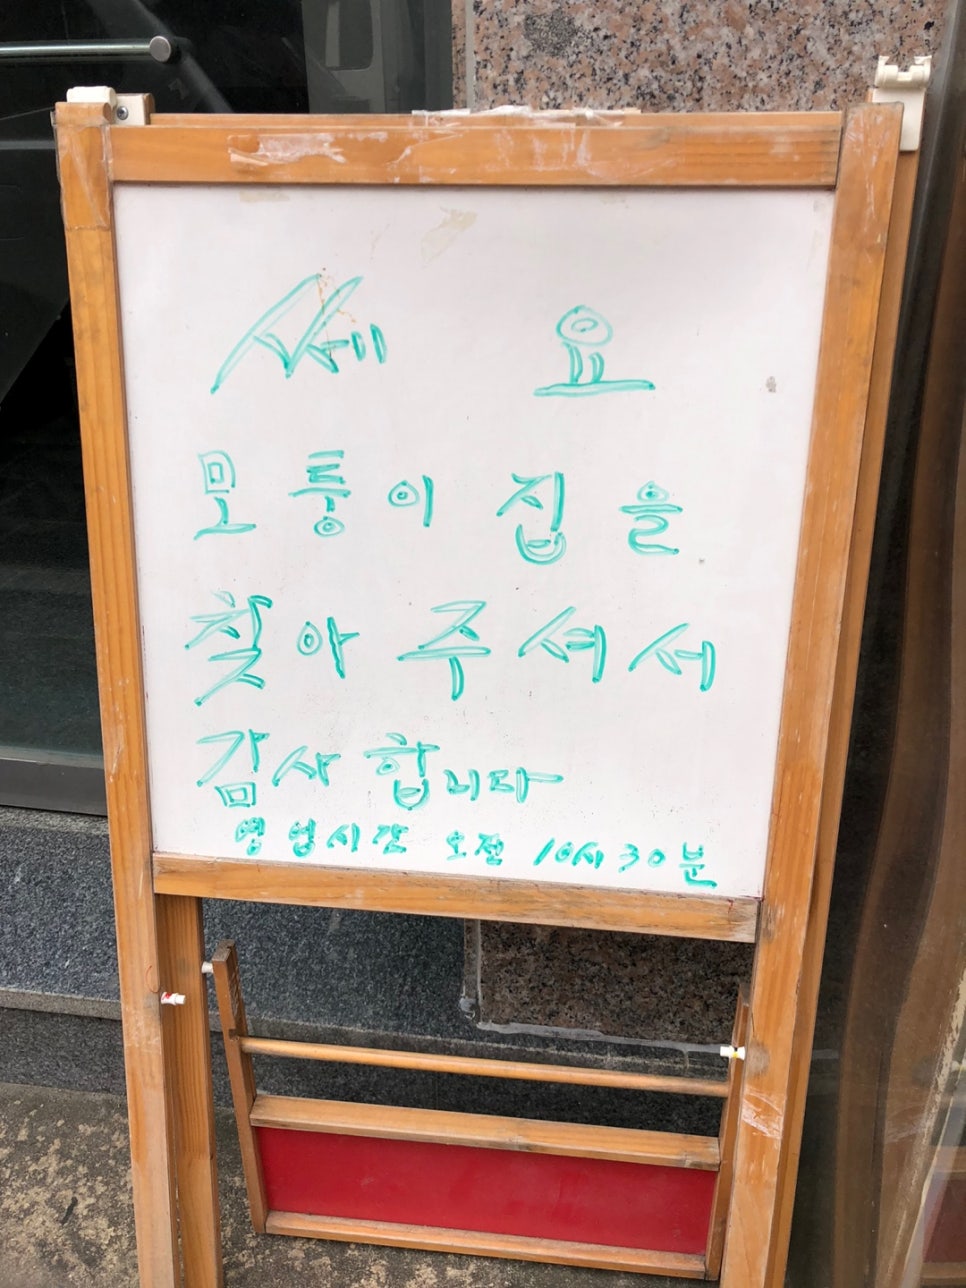 쎄 요
모퉁이 집을
찾아 주셔서
감사합니다
영업시간 오전 10시30분